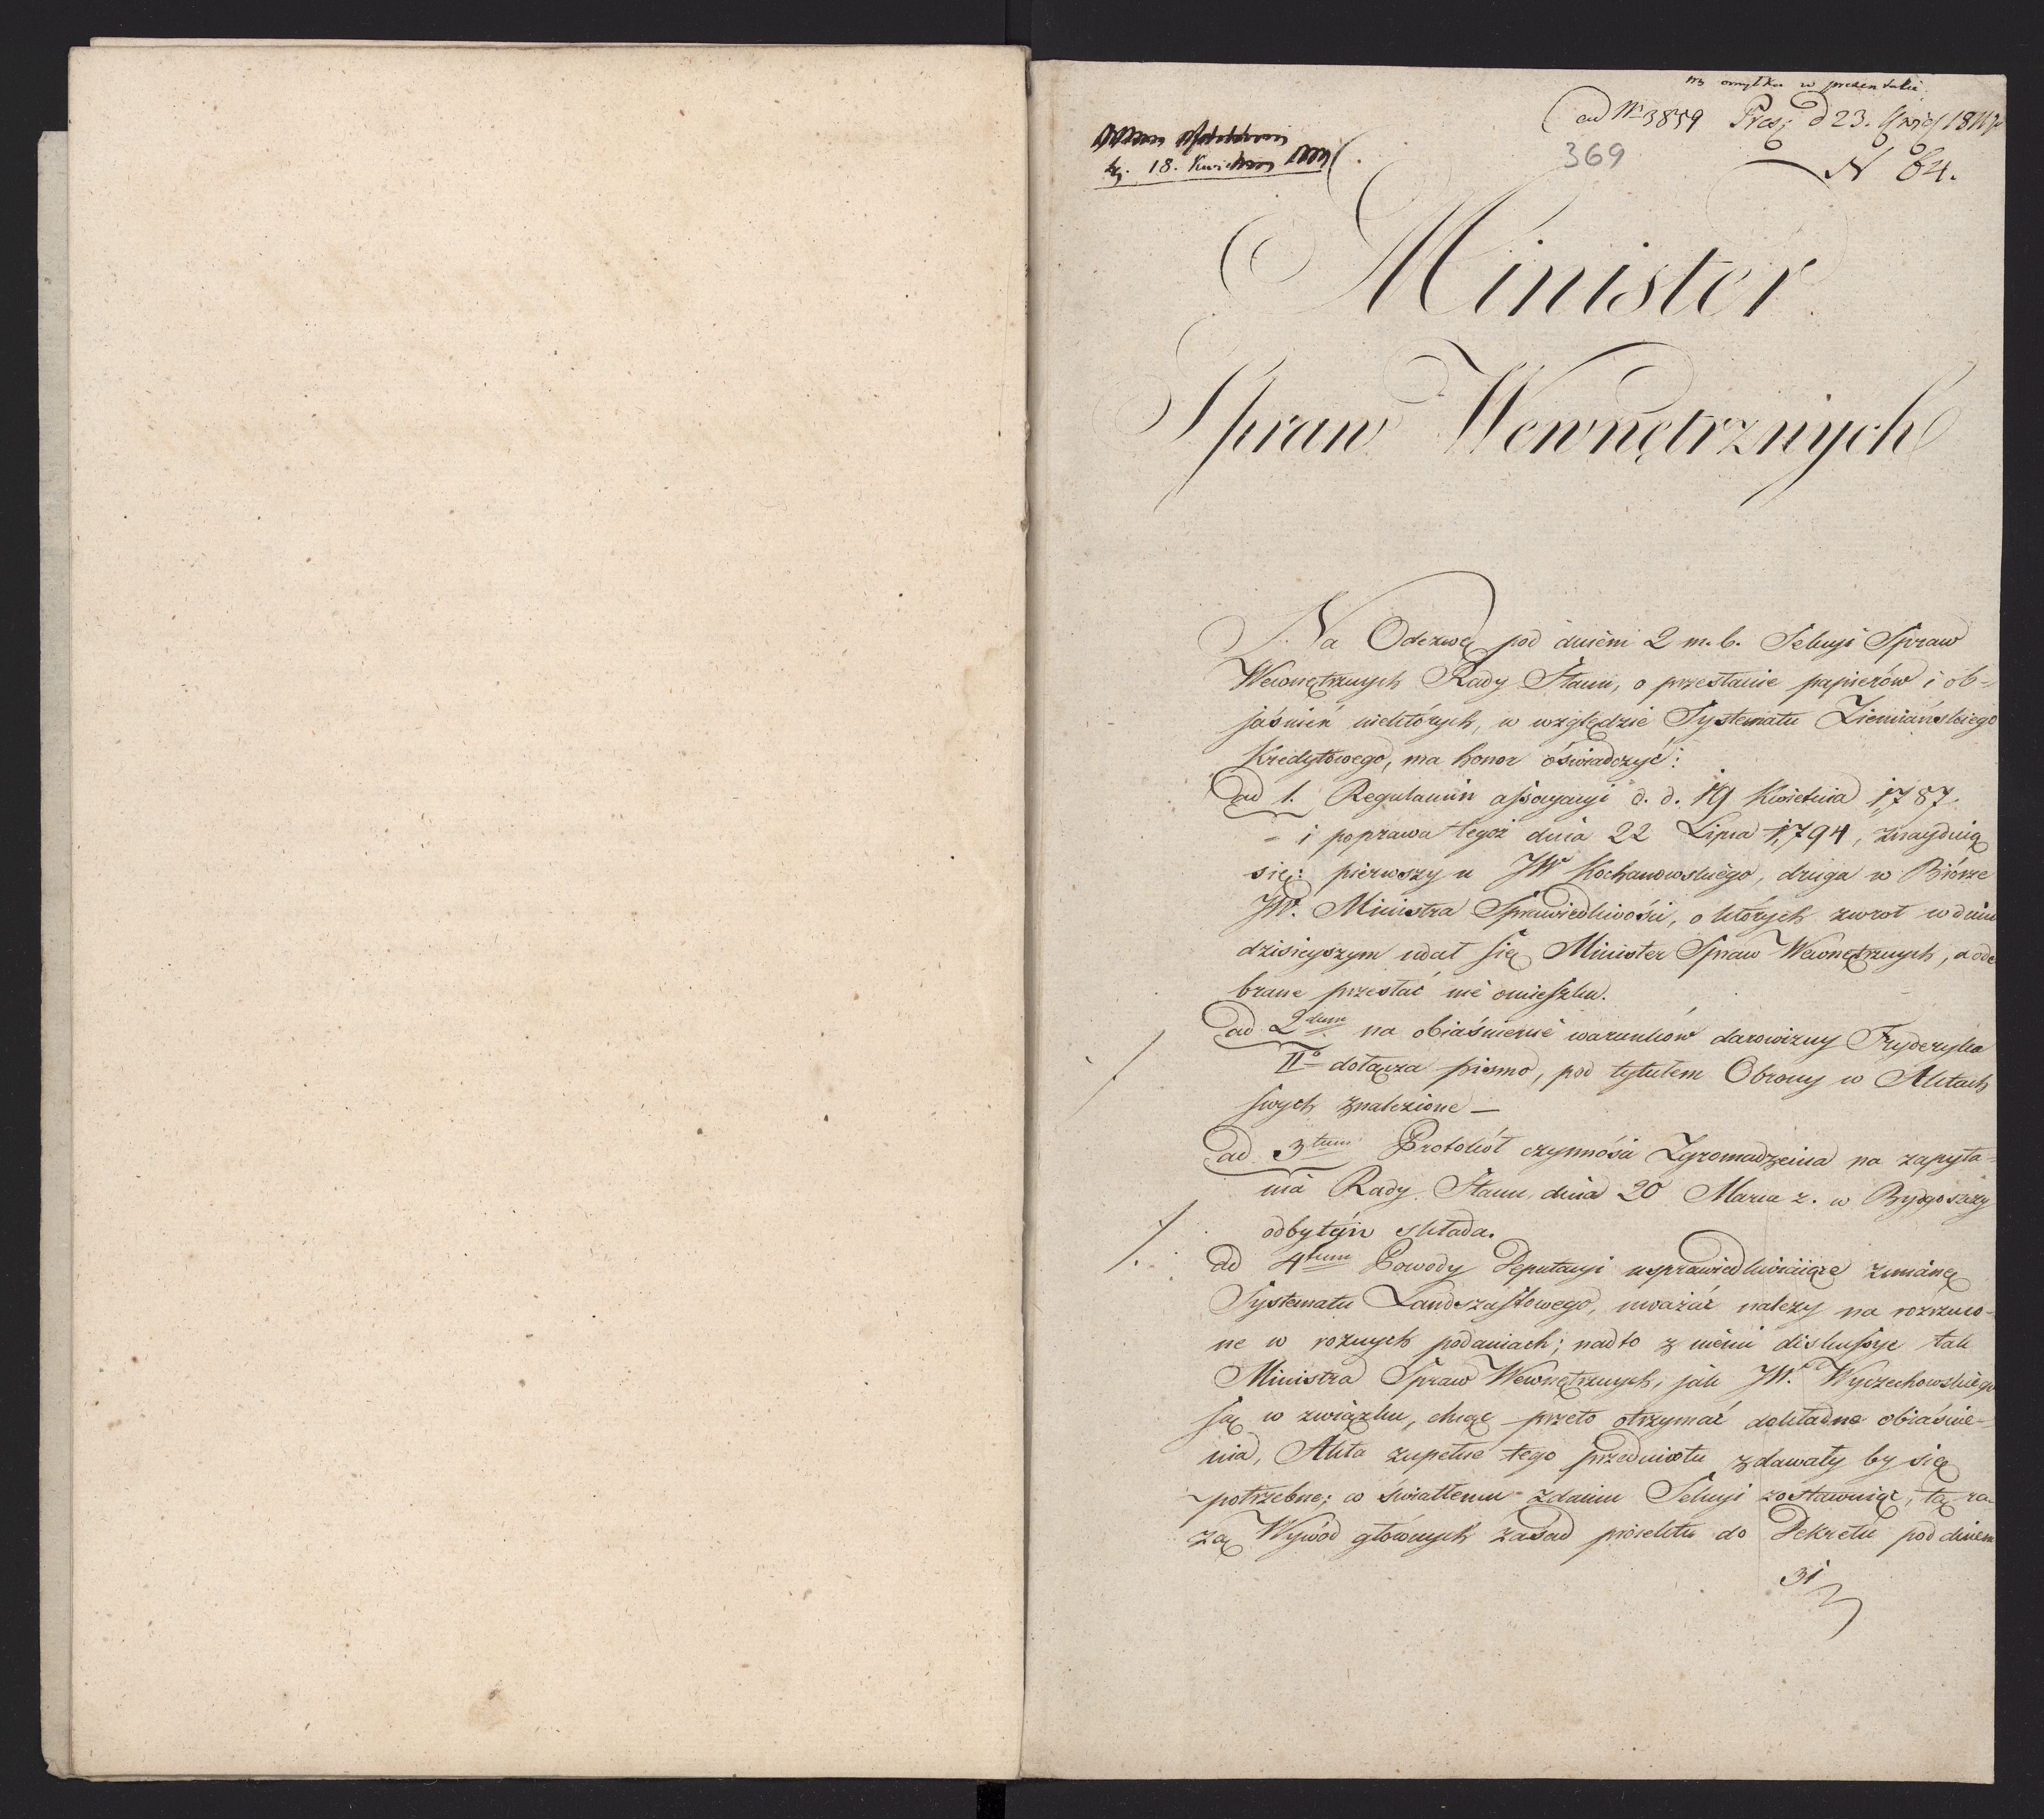 omyłka w prezentatie
ad Nr 3859 Pres; d 23.
18. Kwietnia
369
N 64.
Minister
Spraw Wewnętrznych
Na Odezwę pod dniem 2 m. b. Sekcyi Spraw
Wewnętrznych Rady Stanu, o przesłanie papierów i ob=
jaśnień niektórych, w względzie Systematu Ziemiańskiego
Kredytowego, ma honor oświadczyć:
ad 1. Regulamin assocyacyi d. d. 19 Kwietnia 1787
- i poprawa tegoż dnia 22 Lipca 1794, znayduią
się: pierwszy u JW Kochanowskiego, druga w Biórze
JW. Ministra Sprawiedliwości, o których zwrot w dniu
dzisieyszym udał się Minister Spraw Wewnętrznych, a ode
brane przesłać nie omieszka.
ad 2dum na obiaśnienie warunków darowizny Fryderyka
IIo dołącza pismo, pod tytułem Obrony w Aktach
swych znalezione —
ad 3tium Protokół czynności Zgromadzenia na zapyta=
nia Rady Stanu, dnia 20 Marca r. w Bydgoszczy
odbytym składa.
ad 4tum Powody Deputacyi usprawiedliwiaiące zmianę
Systematu Landszaftowego, uważać należy na rozrzuco-
ne w roznych podaniach; nadto z niemi diskussye tak
Ministra Spraw Wewnętrznych, jak JW. Wyczechowskiego
są w związku, chcąc przeto otrzymać dokładne obiaśnie-
nia, Akta zupełne tego przedmiotu zdawały by się
potrzebne; co światłemu zdaniu Sekcyi zostawuiąc, tą ra-
zą Wywód głównych zasad proiektu do Dekretu pod dniem
31